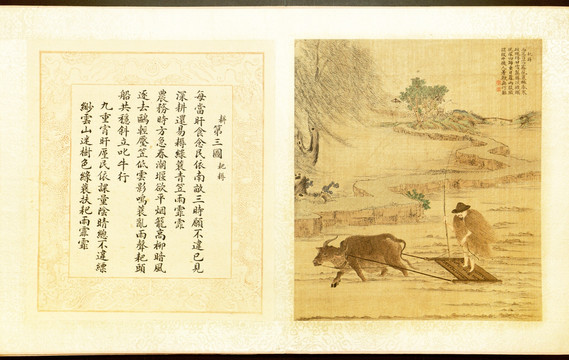 耕 第三圖 耙耨
每當旰食念民依南畝三時願不違已見
深耕還易耨綠蓑青笠雨霏霏
農務時方急春潮堰欲平烟籠高柳暗風
逐去鷗輕壓笠低雲影鳴蓑亂雨聲耙頭
船共穩斜立叱牛行
九重宵旰廑民依課量陰晴總不違縹
緲雲山迷樹色綠蓑扶耙雨霏霏